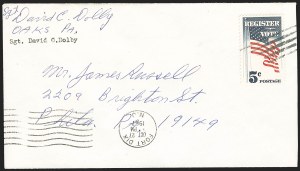 David C. Dolby
OAKS Pa.
Sgt. David C. Dolby
REGISTER
VOTE
5c
POSTAGE
Mr. James Russell
2209 Brighton St.
Phila. Pa. 19149
FORT DIX
N.J.
OCT 27
PM